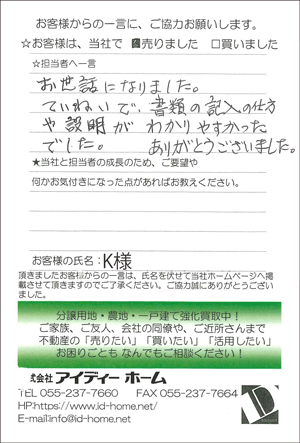 お客様からの一言に、ご協力お願いします。
☆お客様は、当社で ■売りました □買いました
☆担当者へ一言
お世話になりました。
ていねいで、書類の記入の仕方
や説明が わかりやすかった
でした。 ありがとうございました。
★当社と担当者の成長のため、ご要望や
何かお気付きになった点があればお教えください。
お客様の氏名：K様
頂きましたお客様からの一言は、氏名を伏せて当社ホームページへ掲
載させて頂きますのでご了承ください。ご協力誠にありがとうござい
ました。
分譲用地・農地・一戸建て強化買取中！
ご家族、ご友人、会社の同僚や、ご近所さんまで
不動産の「売りたい」「買いたい」「活用したい」
お困りごとも なんでもご相談ください！
株式会社 アイディー ホーム
TEL 055-237-7660 FAX 055-237-7664
HP:https://www.id-home.net/
E-mail:info@id-home.net